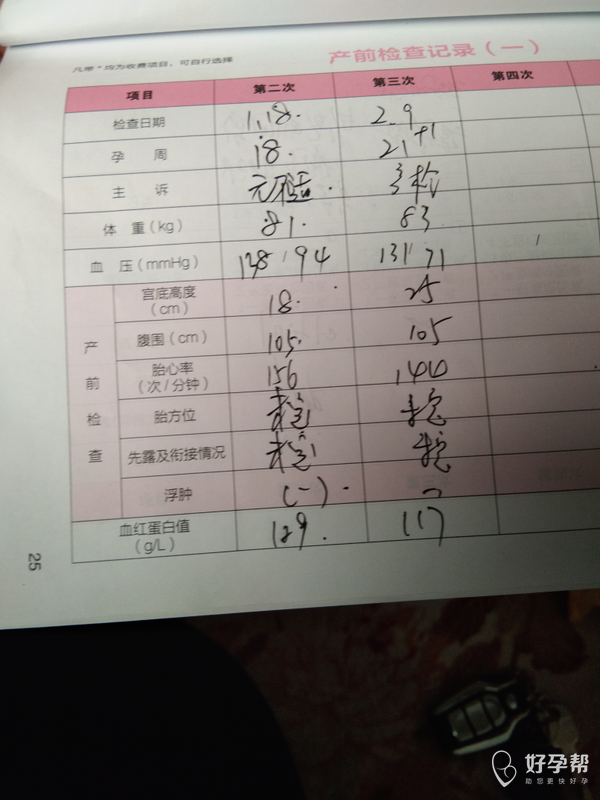 凡带*均为收费项目，可自行选择
产前检查记录（一）
项目 第二次 第三次 第四次
检查日期 1.18. 2.9
孕周 18. 21+1
主诉 产检
体重（kg） 81. 83
血压（mmHg） 138/94 131/71
产前检查
宫底高度（cm） 18. 25
腹围（cm） 105. 105
胎心率（次/分钟） 156 144
胎方位 未定 未定
先露及衔接情况 未定 未定
浮肿 (-). -
血红蛋白值（g/L） 129. 117
25
好孕帮
助您更快好孕